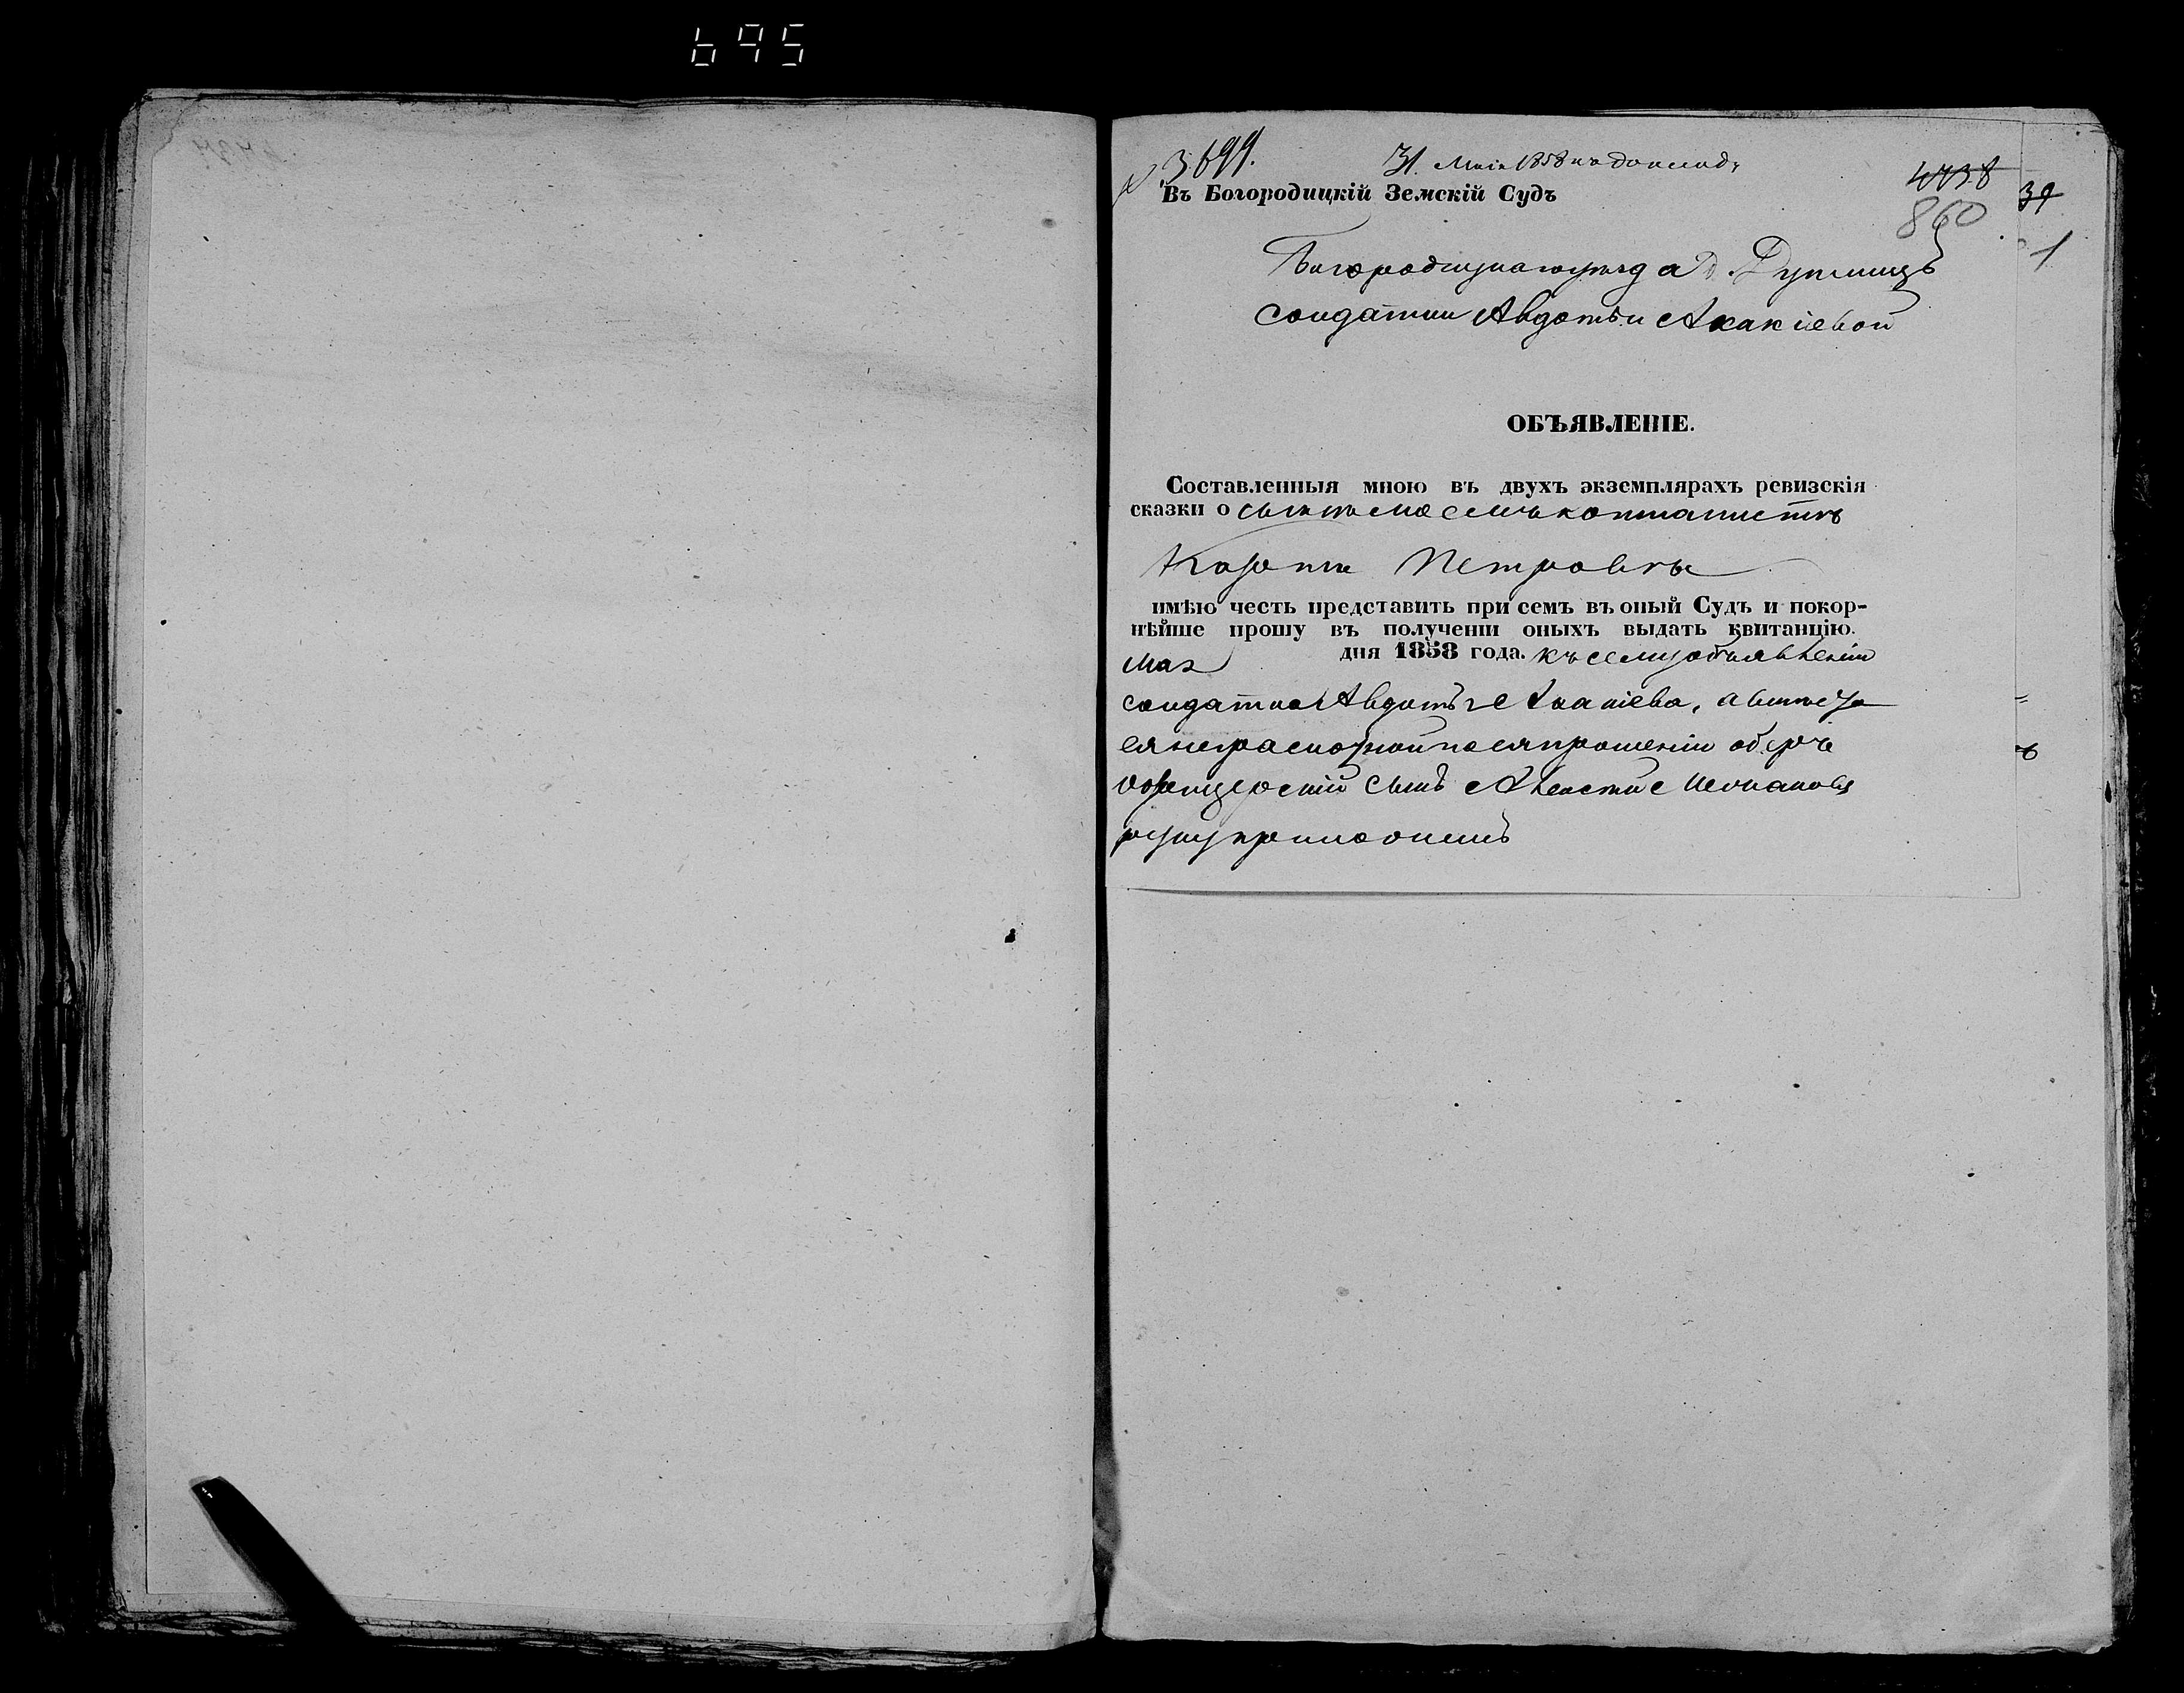 695
3699.
31 Маія 1858 на докладъ
4738
860
39
1
Въ Богородицкій Земскій Судъ
Богородицкаго уезда д.
Солдатки Авдотьи Акакіевой
ОБЪЯВЛЕНІЕ.
Составленныя мною въ двухъ экземплярахъ ревизскія
сказки о сыне моемъ кантонисте
Петрове
имѣю честь представить при семъ въ оный Судъ и покор-
нѣйше прошу въ полученіи оныхъ выдать квитанцію.
Мая дня 1858 года. къ сему объявленію
солдатка Авдотья Акакіева, а вместо
ея неграмотной по ея прошенію оберъ
офицерскій сынъ Алексей
руку приложилъ